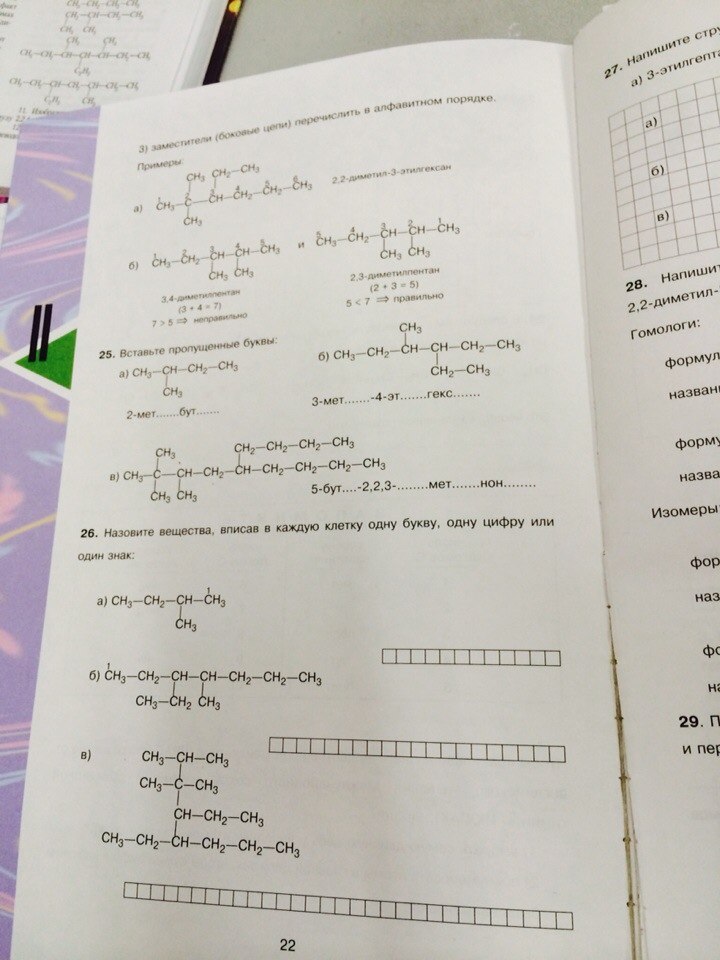 3) заместители (боковые цепи) перечислить в алфавитном порядке.
Примеры:
CH₃ CH₂—CH₃
а) CH₃—C—CH—CH₂—CH₂—CH₃
1 2 3 4 5 6
CH₃
2,2-диметил-3-этилгексан
б) CH₃—CH₂—CH—CH—CH₃
1 2 3 4 5
CH₃ CH₃
3,4-диметилпентан
(3 + 4 = 7)
7 > 5 ⇒ неправильно
и
CH₃—CH₂—CH—CH—CH₃
5 4 3 2 1
CH₃ CH₃
2,3-диметилпентан
(2 + 3 = 5)
5 < 7 ⇒ правильно
25. Вставьте пропущенные буквы:
а) CH₃—CH—CH₂—CH₃
CH₃
2-мет.......бут.......
CH₃
б) CH₃—CH₂—CH—CH—CH₂—CH₃
CH₂—CH₃
3-мет.......-4-эт.......гекс.......
CH₃ CH₂—CH₂—CH₂—CH₃
в) CH₃—C—CH—CH₂—CH—CH₂—CH₂—CH₂—CH₃
CH₃ CH₃
5-бут....-2,2,3-........мет.......нон........
26. Назовите вещества, вписав в каждую клетку одну букву, одну цифру или
один знак:
1
а) CH₃—CH₂—CH—CH₃
CH₃
1
б) CH₃—CH₂—CH—CH—CH₂—CH₂—CH₃
CH₃—CH₂ CH₃
в) CH₃—CH—CH₃
CH₃—C—CH₃
CH—CH₂—CH₃
CH₃—CH₂—CH—CH₂—CH₂—CH₃
22
27. Напишите
а) 3-этилгепт
а)
б)
в)
28. Напишит
2,2-диметил-
Гомологи:
формул
назван
форму
назва
Изомеры:
фор
наз
фо
на
29. П
и пер